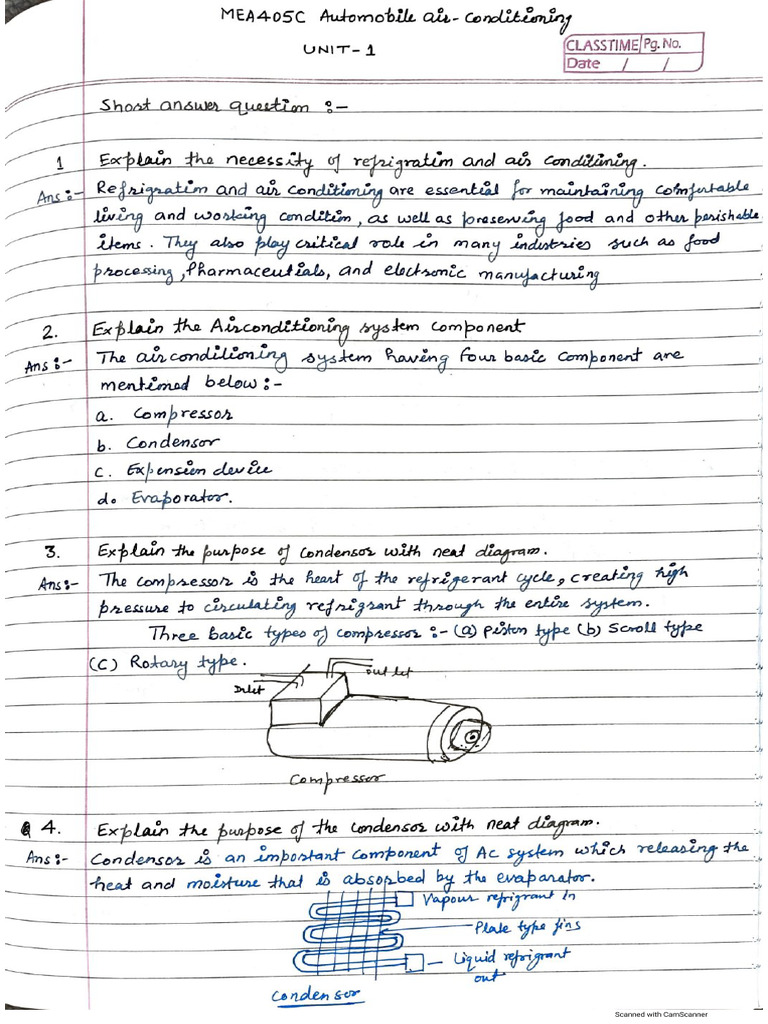 MEA405C Automobile air-conditioning
UNIT-1
CLASSTIME Pg. No.
Date / /
Short answer question :-
1 Explain the necessity of refrigratim and air conditining.
Ans :- Refrigratim and air conditioning are essential for maintaining comfortable
living and working condition, as well as preserving food and other perishable
items. They also play critical role in many industries such as food
processing, Pharmaceutials, and electronic manufacturing
2. Explain the Airconditioning system component
Ans :- The airconditioning system having four basic component are
mentioned below :-
a. Compressor
b. Condensor
c. Expension device
d. Evaporator.
3. Explain the purpose of condensor with neat diagram.
Ans :- The compressor is the heart of the refrigerant cycle, creating high
pressure to circulating refrigrant through the entire system.
Three basic types of compressor :- (a) Piston type (b) Scroll type
(C) Rotary type.
Inlet
out let
Compressor
4. Explain the purpose of the condensor with neat diagram.
Ans :- Condensor is an important component of Ac system which releasing the
heat and moisture that is absorbed by the evaporator.
Vapour refrigrant In
Plate type fins
Liquid refrigrant
out
Condensor
Scanned with CamScanner